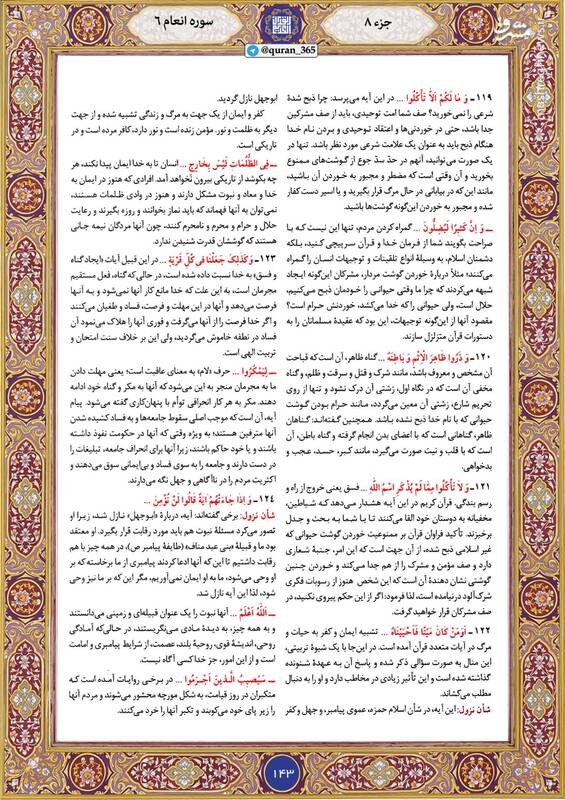 جزء ۸
سوره انعام ۶
@quran_365
۱۱۹ـ وَ مَا لَكُمْ اَلّا تَأْكُلُوا ... در این آیه می‌پرسد: چرا ذبح شدهٔ
شرعی را نمی‌خورید؟ صف شما امت توحیدی، باید از صف مشرکین
جدا باشد، حتی در خوردنی‌ها و اعتقاد توحیدی و بردن نام خدا
هنگام ذبح باید به عنوان یک علامت شرعی مورد نظر باشد. تنها در
یک صورت می‌توانید، آنهم در حدّ سدّ جوع از گوشت‌های ممنوع
بخورید و آن وقتی است که مضطر و مجبور به خوردن آن باشید،
مانند این که در بیابانی در حال مرگ قرار بگیرید و یا اسیر دست کفار
شده و مجبور به خوردن این‌گونه گوشت‌ها باشید.
ــ وَ اِنَّ كَثيرًا لَيُضِلُّونَ ... گمراه کردن مردم، تنها این نیست که با
صراحت بگویند شما از فرمان خدا و قرآن سرپیچی کنید، بلکه
دشمنان اسلام، به وسیلهٔ انواع تلقینات و توجیهات انسان را گمراه
می‌کنند؛ مثلاً دربارهٔ خوردن گوشت مردار، مشرکان این‌گونه ایجاد
شبهه می‌کردند که چرا ما وقتی حیوانی را خودمان ذبح می‌کنیم،
حلال است، ولی حیوانی را که خدا می‌کشد، خوردنش حرام است؟
مقصود آنها از این‌گونه توجیهات، این بود که عقیدهٔ مسلمانان را به
دستورات قرآن متزلزل سازند.
۱۲۰ـ وَ ذَرُوا ظَاهِرَ الْاِثْمِ وَ بَاطِنَهُ ... گناه ظاهر، آن است که قباحت
آن مشخص و معروف باشد، مانند شرک و قتل و سرقت و ظلم، و گناه
مخفی آن است که در نگاه اول، زشتی آن درک نشود و تنها از روی
تحریم شارع، زشتی آن معین می‌گردد، مانند حرام بودن گوشت
حیوانی که با نام خدا ذبح نشده باشد. همچنین گفته‌اند: گناهان
ظاهر، گناهانی است که با اعضای بدن انجام گرفته و گناه باطن، آن
است که با قلب و نیت صورت می‌گیرد، مانند کبر، حسد، عجب و
بدخواهی.
۱۲۱ـ وَ لَا تَأْكُلُوا مِمَّا لَمْ يُذْكَرِ اسْمُ اللّٰهِ ... فسق یعنی خروج از راه و
رسم بندگی. قرآن کریم در این آیه هشدار می‌دهد که شیاطین،
مخفیانه به دوستان خود القا می‌کنند تا با شما به بحث و جدل
برخیزند. تأکید فراوان قرآن بر ممنوعیت خوردن گوشت حیوانی که
غیر اسلامی ذبح شده، از آن جهت است که این امر، جنبهٔ شعاری
دارد و صف مؤمن و مشرک را از هم جدا می‌کند و خوردن چنین
گوشتی نشان دهندهٔ آن است که این شخص هنوز از رسوبات فکری
شرک‌آلود درنیامده است، لذا فرمود: اگر از این حکم پیروی نکنید، در
صف مشرکان قرار خواهید گرفت.
۱۲۲ـ اَوَمَنْ كَانَ مَيْتًا فَاَحْيَيْنَاهُ ... تشبیه ایمان و کفر به حیات و
مرگ در آیات متعدد قرآن آمده است. در این‌جا با یک شیوهٔ تربیتی،
این مثال به صورت سؤالی ذکر شده و پاسخ آن به عهدهٔ شنونده
گذاشته شده است و این تأثیر زیادی در مخاطب دارد و او را به دنبال
مطلب می‌کشاند.
شأن نزول: این آیه، در شأن اسلام حمزه، عموی پیامبر، و جهل و کفر
ابوجهل نازل گردید.
کفر و ایمان از یک جهت به مرگ و زندگی تشبیه شده و از جهت
دیگر به ظلمت و نور. مؤمن زنده است و نور دارد، کافر مرده است و در
تاریکی است.
ــ فِى الظُّلُمَاتِ لَيْسَ بِخَارِجٍ ... انسان تا به خدا ایمان پیدا نکند، هر
چه بکوشد از تاریکی بیرون نخواهد آمد. افرادی که هنوز در ایمان به
خدا و معاد و نبوت مشکل دارند و هنوز در وادی ظلمات هستند،
نمی‌توان به آنها فهماند که باید نماز بخوانند و روزه بگیرند و رعایت
حلال و حرام و محرم و نامحرم کنند، چون آنها مردگان نیمه جانی
هستند که گوششان قدرت شنیدن ندارد.
۱۲۳ـ وَ كَذٰلِكَ جَعَلْنَا فِى كُلِّ قَرْيَةٍ ... در این قبیل آیات «ایجاد گناه
و فسق» به خدا نسبت داده شده است، در حالی که گناه، فعل مستقیم
مجرمان است، به این علت که خدا مانع کار آنها نمی‌شود و به آنها
فرصت می‌دهد و آنها در این مهلت و فرصت، فساد و طغیان می‌کنند
و اگر خدا فرصت را از آنها می‌گرفت و فوری آنها را هلاک می‌نمود آن
فساد در نطفه خاموش می‌گردید، ولی این بر خلاف سنت امتحان و
تربیت الهی است.
ــ لِيَمْكُرُوا ... حرف «لام» به معنای عاقبت است؛ یعنی مهلت دادن
ما به مجرمان منجر به این می‌شود که آنها به مکر و گناه خود ادامه
دهند. مکر به هر کار انحرافی توأم با پنهان‌کاری گفته می‌شود. پیام
آیه، آن است که موجب اصلی سقوط جامعه‌ها و به فساد کشیده شدن
آنها مترفین هستند؛ به ویژه وقتی که آنها در حکومت نفوذ داشته
باشند و یا خود حاکم باشند، زیرا آنها برای انحراف جامعه، تبلیغات را
در دست دارند و جامعه را به سوی فساد و بی‌ایمانی سوق می‌دهند و
اکثریت مردم را در ناآگاهی و جهل نگه می‌دارند.
۱۲۴ـ وَ اِذَا جَاءَتْهُمْ ايَةٌ قَالُوا لَنْ نُؤْمِنَ ...
شأن نزول: برخی گفته‌اند: آیه، دربارهٔ «ابوجهل» نازل شد، زیرا او
تصور می‌کرد مسئلهٔ نبوت هم باید مورد رقابت قرار بگیرد. او معتقد
بود ما و قبیلهٔ «بنی عبد مناف» (طایفهٔ پیامبر ص)، در همه چیز با هم
رقابت داشتیم تا این که آنها ادعا کردند پیامبری از ما برخاسته که بر
او وحی می‌شود، ما به او ایمان نمی‌آوریم، مگر این که بر ما نیز وحی
شود، لذا این آیه نازل شد.
ــ اَللّٰهُ اَعْلَمُ ... آنها نبوت را یک عنوان قبیله‌ای و زمینی می‌دانستند
و به همه چیز، به دیدهٔ مادی می‌نگریستند، در حالی‌که آمادگی
روحی، اندیشهٔ قوی، روحیهٔ بلند، عصمت، از شرایط پیامبری و امامت
است و از این امور، جز خدا کسی آگاه نیست.
ــ سَيُصِيبُ الَّذِينَ اَجْرَمُوا ... در برخی روایات آمده است که
متکبران در روز قیامت، به شکل مورچه محشور می‌شوند و مردم آنها
را زیر پای خود می‌کوبند و تکبر آنها را خرد می‌کنند.
۱۴۳